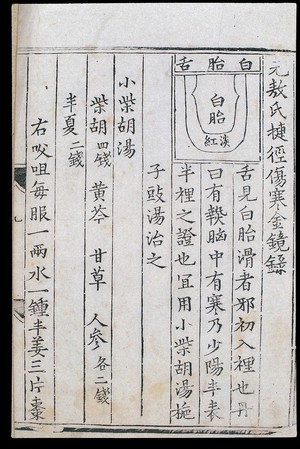 元敖氏捷徑傷寒金鏡錄
白胎舌
白胎
淡紅
舌見白胎滑者邪初入裡也丹
曰有熱腦中有寒乃少陽半表
半裡之證也宜用小柴胡湯梔
子豉湯治之
小柴胡湯
柴胡四錢 黃芩 甘草 人參各二錢
半夏二錢
右㕮咀每服一兩水一鍾半姜三片棗